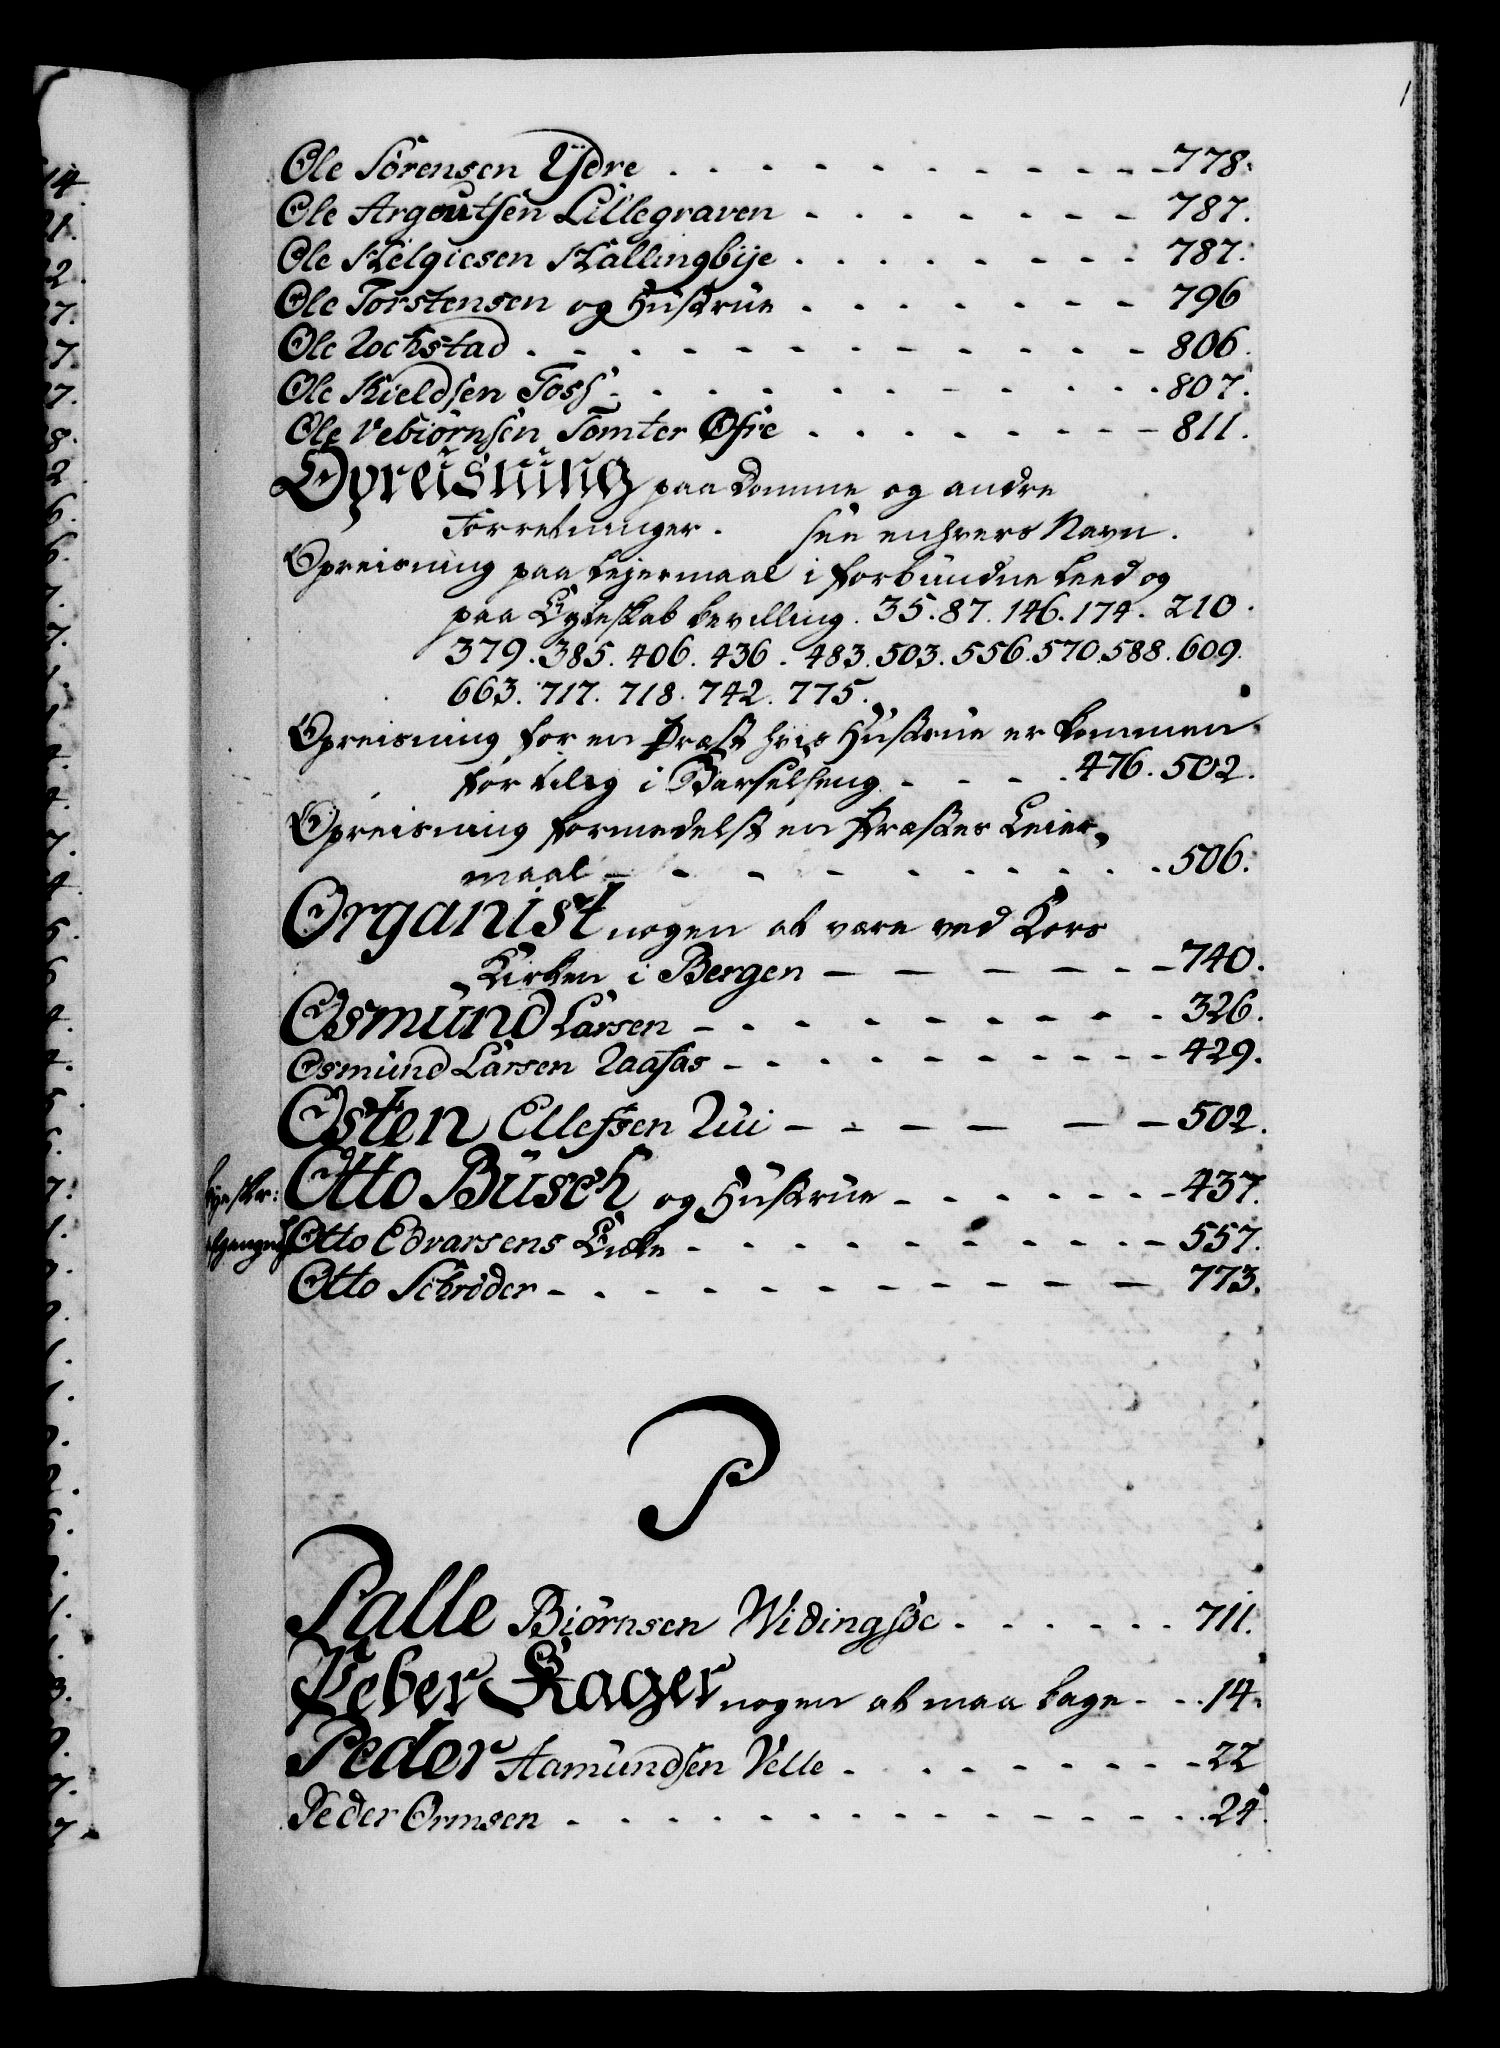 Ole Sörensen Ÿdre - - - 778.
Ole Argoutsen Lillegraven - - - 787.
Ole Helgiesen Hallingbÿe - - - 787.
Ole Torstensen og Hustrue - - - 796
Ole Rochstad - - - 806.
Ole Kieldsen Foss - - - 807.
Ole Vebiörnsen Tomter Øfre - - - 811.
Opreisning paa Domme og andre
Forretninger. See enhvers Navn.
Opreisning paa Lejermaal i forbundne Leed og
paa Egteskab bevilling. 35. 87. 146. 174. 210.
379. 385. 406. 436. 483. 503. 556. 570. 588. 609.
663. 717. 718. 742. 775.
Opreisning for en Præst hvis Hustrue er kommen
for tilig i Barselseng - - - 476. 502.
Opreisning formedelst en Præstes Leier-
maal - - - 506.
Organist nogen at være ved Kors
Kirken i Bergen - - - 740.
Osmund Larsen - - - 326.
Osmund Larsen Raafas - - - 429.
Osten Ellefsen Rui - - - 502.
Otto Büsch og Hustrue - - - 437.
Otto Edvarsens Enke - - - 557.
Otto Schröder - - - 773.
P
Palle Biörnsen Widingsöe - - - 711.
Peber Kager nogen at maa bage - - - 14.
Peder Aamundsen Velle - - - 22
Peder Ormsen - - - 24.